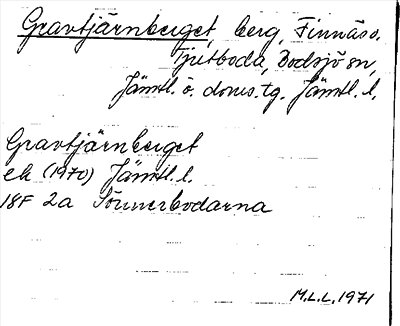 Gravtjärnberget, berg, Finnäs o.
Tjutboda, Bodsjö sn,
Jämtl. ö. doms.tg. Jämtl. l.
Gravtjärnberget
ek (1970) Jämtl. l.
18F 2a Sönnerbodarna
M.L.L. 1971